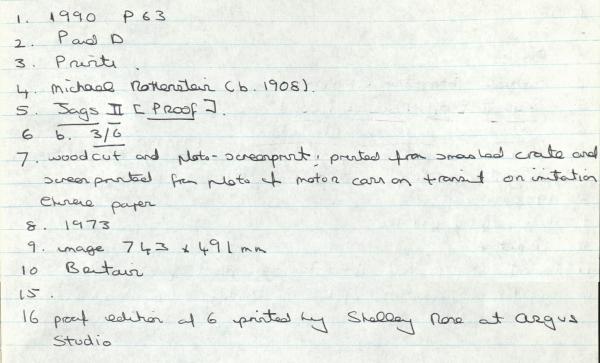 1. 1990 P 63
2. P and D
3. Prints.
4. Michael Rothenstein (b. 1908).
5. Jags II [PROOF].
6 b. 3/6
7. woodcut and photo-screenprint; printed from smashed crate and
screenprinted from photo of motor cars on transit on imitation
Chinese paper
8. 1973
9. image 743 x 491 mm
10 Britain
15.
16 proof edition of 6 printed by Shelley Rose at Argus
Studio